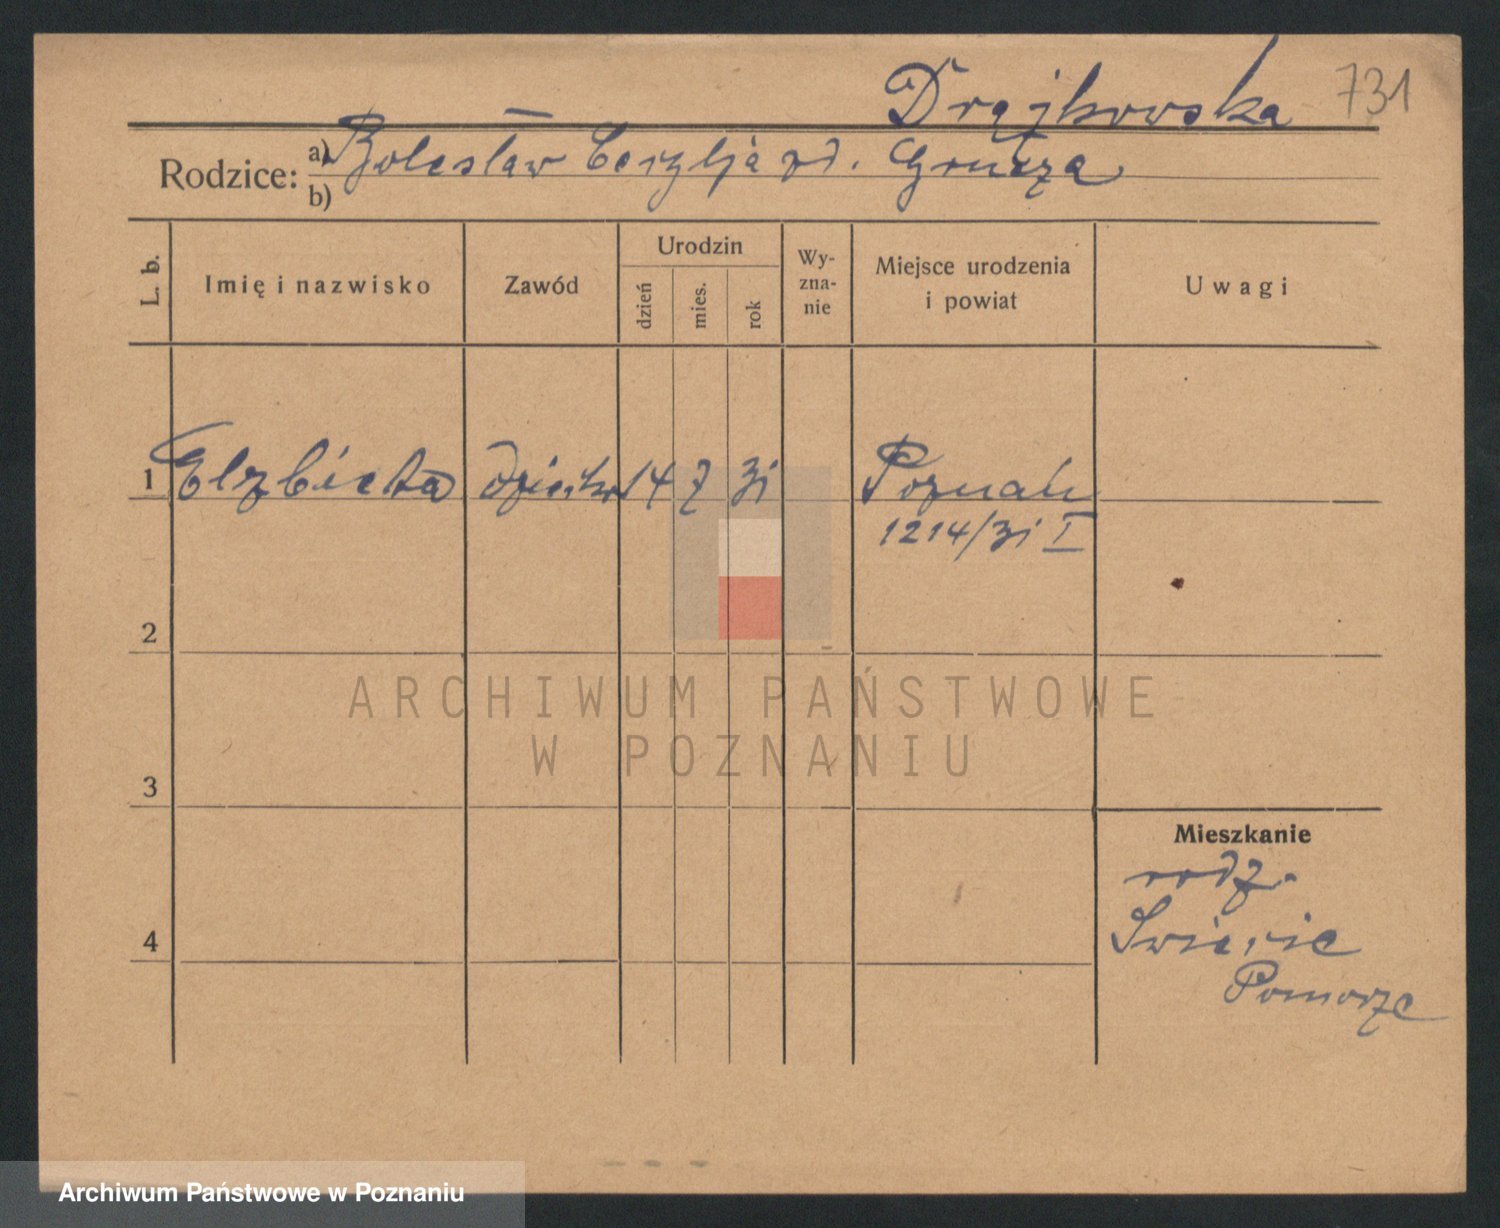 Drążkowska 731
Rodzice: a) Bolesław Cecylja zd.
b)
L. b. Imię i nazwisko Zawód Urodzin dzień mies. rok Wy-
zna-
nie Miejsce urodzenia
i powiat Uwagi
1 Elzbieta dziecko 14 7 31 Poznań
1214/31 I
2
ARCHIWUM PAŃSTWOWE
W POZNANIU
3
Mieszkanie
rodz.
4 Świecie
Pomorze
Archiwum Państwowe w Poznaniu